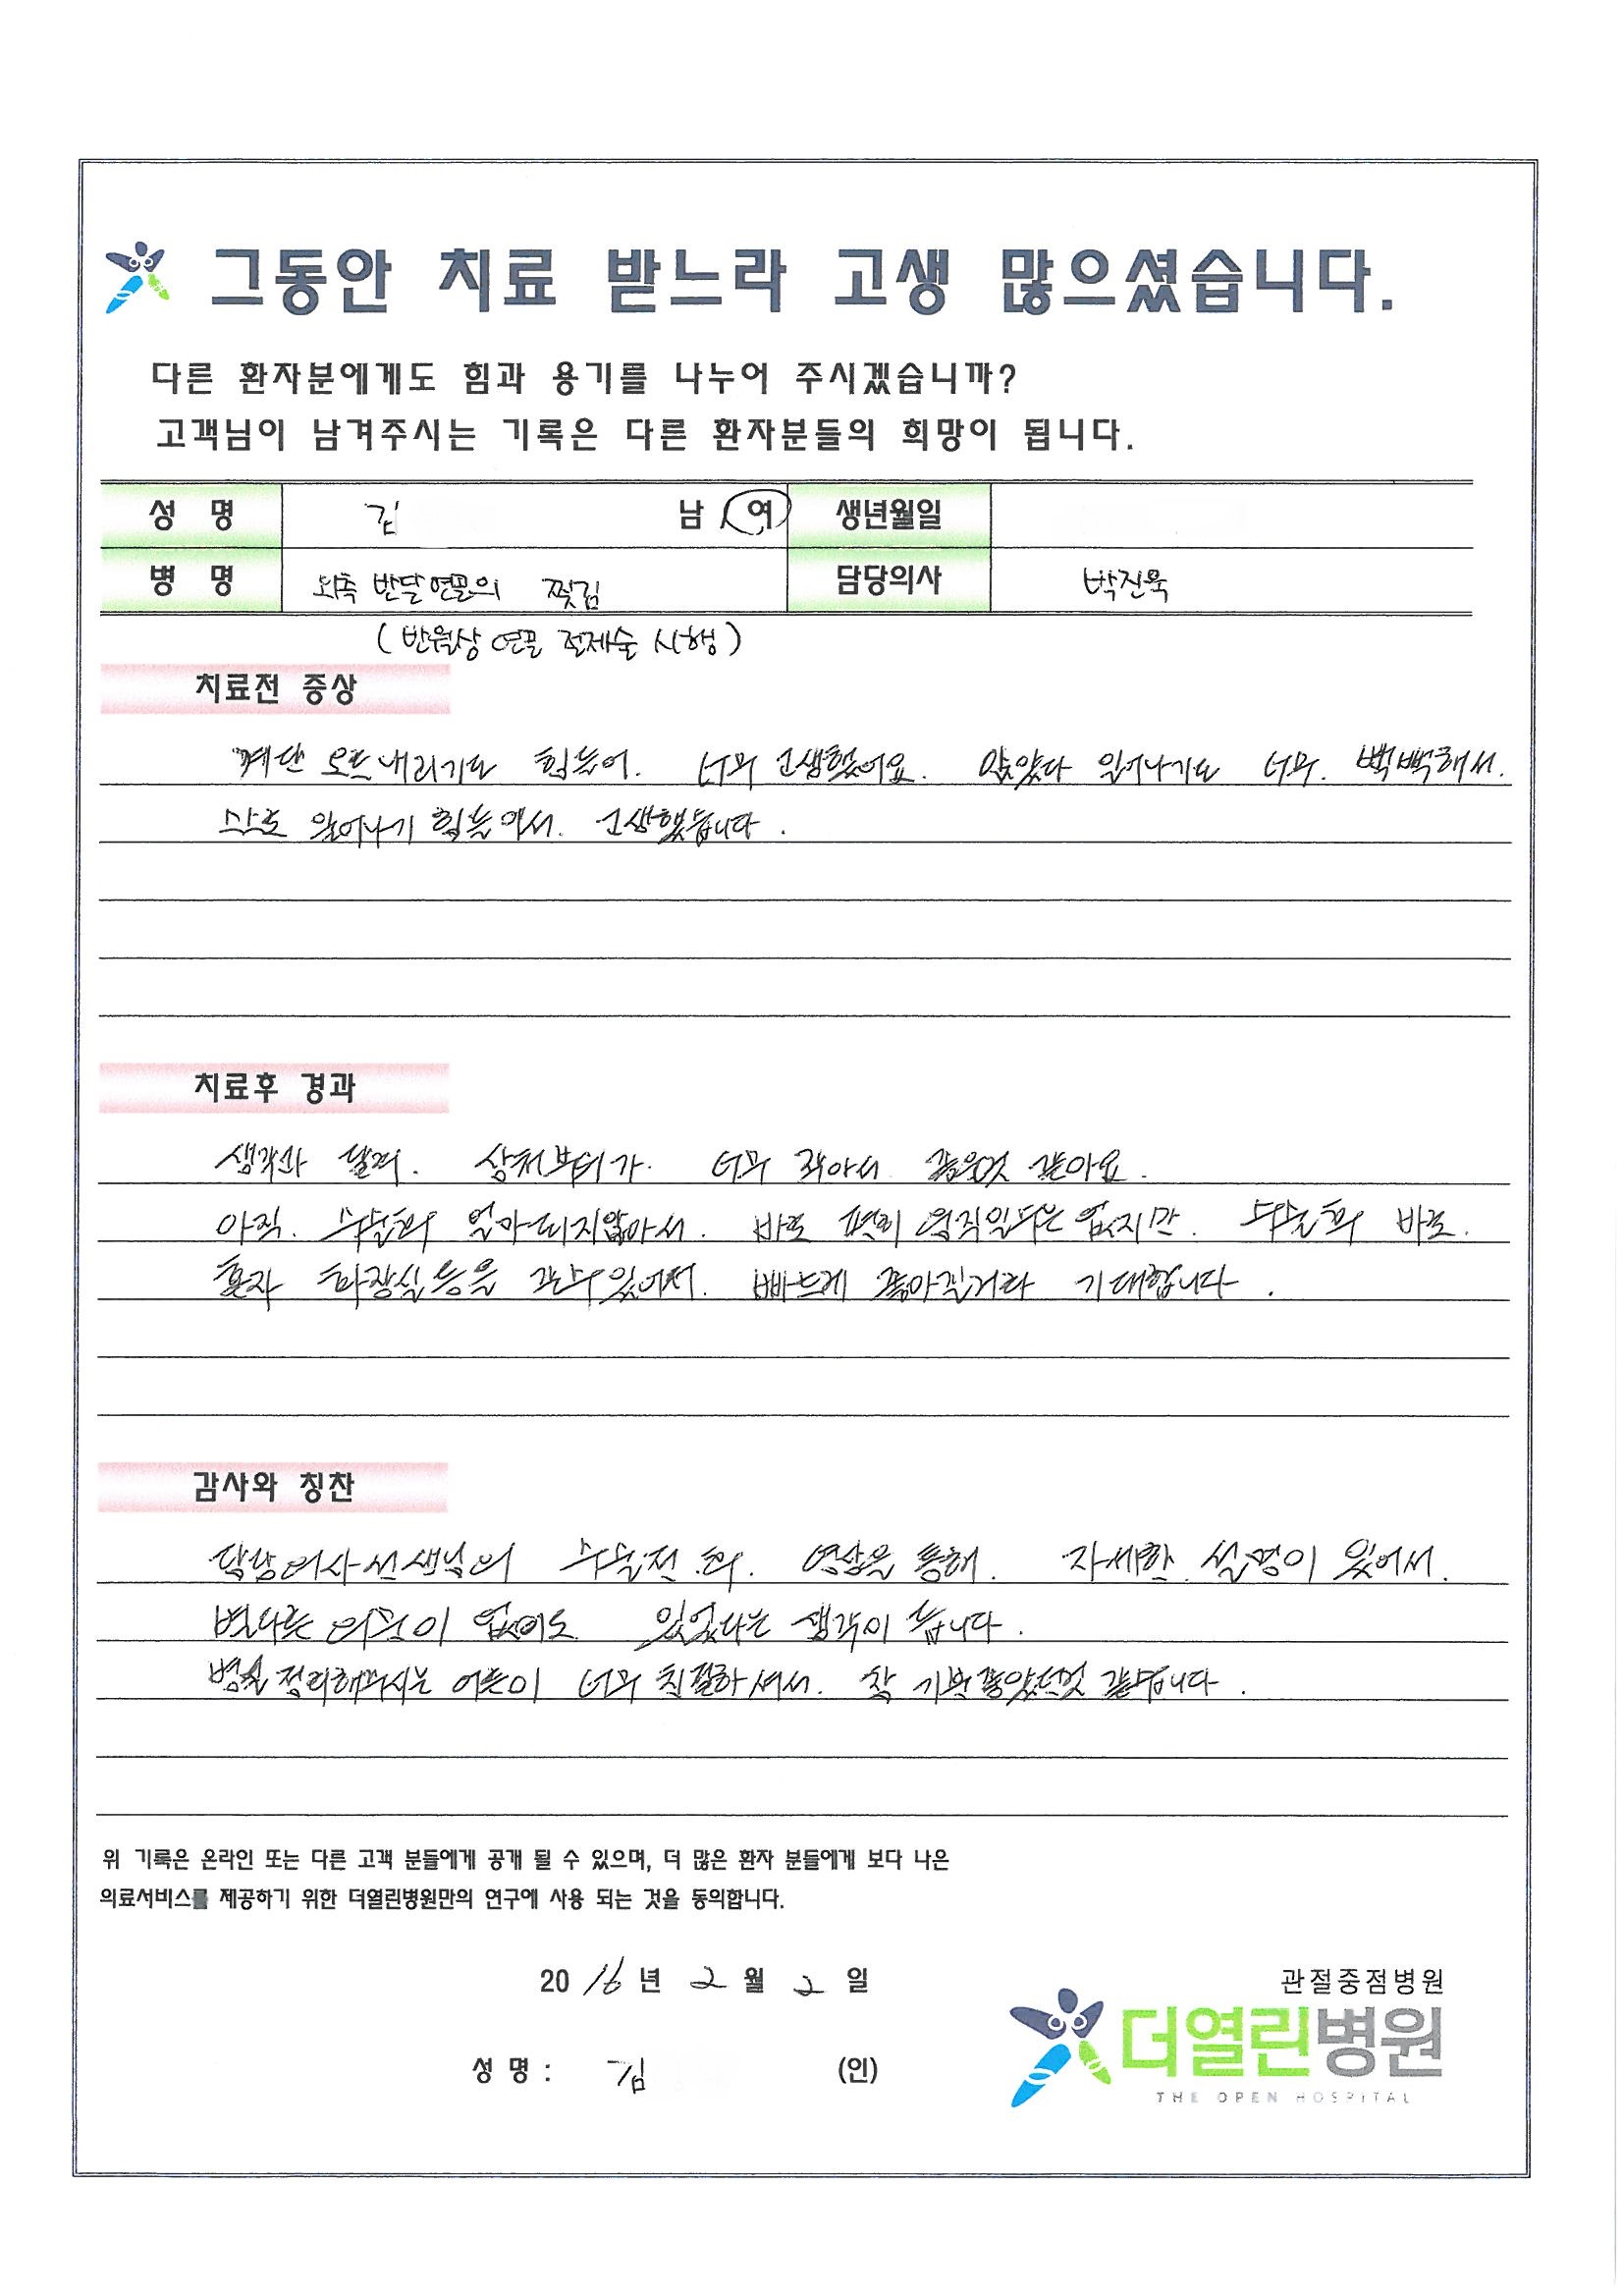 그동안 치료 받느라 고생 많으셨습니다.
다른 환자분에게도 힘과 용기를 나누어 주시겠습니까?
고객님이 남겨주시는 기록은 다른 환자분들의 희망이 됩니다.
성 명 김 남 여 생년월일
병 명 외측 반달연골의 찢김 담당의사 박진욱
(반월상 연골 절제술 시행)
치료전 증상
계단 오르내리기도 힘들어. 너무 고생했어요. 앉았다 일어나기도 너무. 뻑뻑해서.
일어나기 힘들어서. 고생했습니다.
치료후 경과
생각과 달리. 상처부위가. 너무 작아서 좋은것 같아요.
아직. 수술후 얼마되지않아서. 바로 편히 움직일수은 없지만. 수술후 바로.
혼자 화장실등을 갈수있어서. 빠르게 좋아질거라 기대합니다.
감사와 칭찬
담당의사선생님의 수술전.후. 영상을 통해. 자세한 설명이 있어서.
별다른 의심이 없어도 있었다는 생각이 듭니다.
병실 정리해주시는 어른이 너무 친절하셔서. 참 기분좋았던것 같습니다.
위 기록은 온라인 또는 다른 고객 분들에게 공개 될 수 있으며, 더 많은 환자 분들에게 보다 나은
의료서비스를 제공하기 위한 더열린병원만의 연구에 사용 되는 것을 동의합니다.
2016년 2월 2일
관절중점병원
더열린병원
THE OPEN HOSPITAL
성 명 : 김 (인)